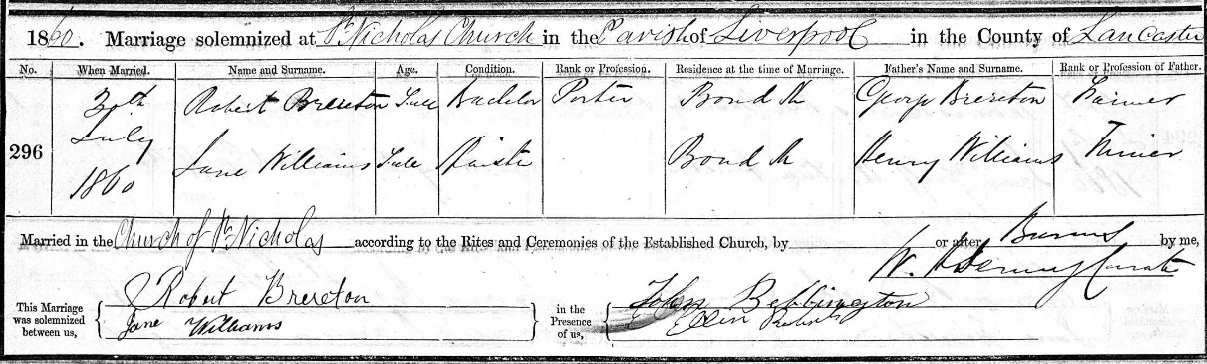 1860. Marriage solemnized at St Nicholas Church in the Parish of Liverpool in the County of Lancaster
No. When Married. Name and Surname. Age. Condition. Rank or Profession. Residence at the time of Marriage. Father's Name and Surname. Rank or Profession of Father.
296
30th July 1860
Robert Brereton Full Bachelor Porter Bond St George Brereton Farmer
Jane Williams Full Bond St Henry Williams
Married in the Church of St Nicholas according to the Rites and Ceremonies of the Established Church, by or after Banns by me,
W. Curate
This Marriage was solemnized between us,
Robert Brereton
Jane Williams
in the Presence of us,
John Bebbington
Ellin Roberts